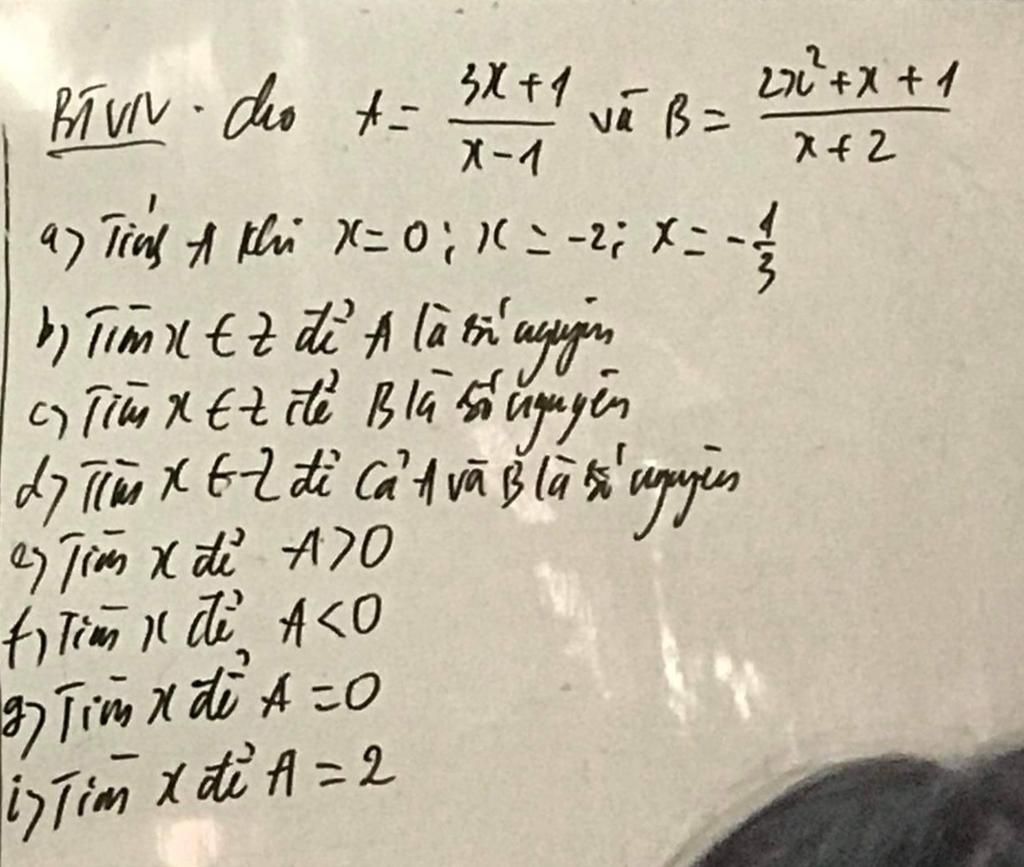 BTVN. Cho A = (3x+1)/(x-1) và B = (2x²+x+1)/(x+2)
a) Tính A khi x=0; x=-2; x=-1/3
b) Tìm x ∈ Z để A là số nguyên
c) Tìm x ∈ Z để B là số nguyên
d) Tìm x ∈ Z để cả A và B là số nguyên
e) Tìm x để A>0
f) Tìm x để A<0
g) Tìm x để A=0
i) Tìm x để A=2